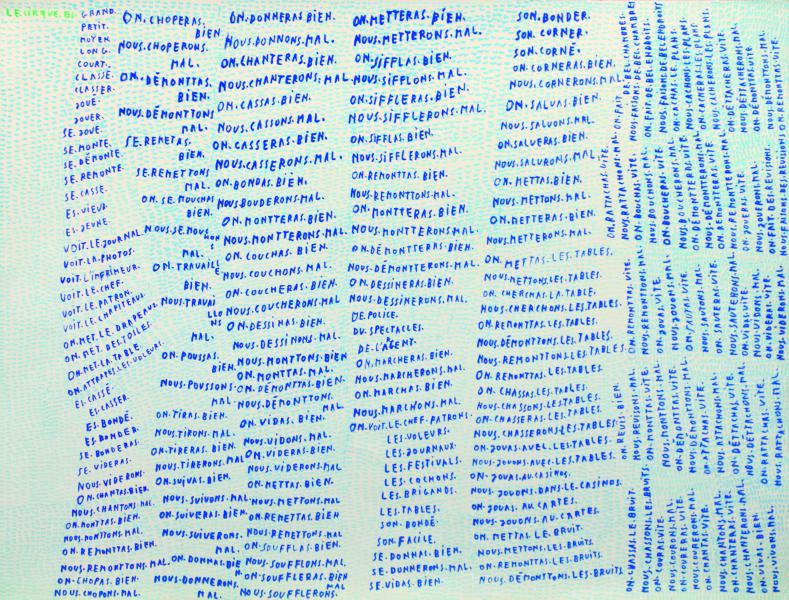 LE.CIRQUE.ES.
GRAND.
PETIT.
MOYEN.
LONG.
COURT.
CLASSE.
CLASSER.
JOUÉ.
JOUER.
SE.JOUE.
SE.MONTE.
SE.DÉMONTE.
SE.REMONTE.
SE.CASSE.
ES.VIEUX.
ES.JEUNE.
VOIT.LE.JOURNAL
VOIT.LA.PHOTOS.
VOIT.L'IMPRIMEUR.
VOIT.LE.CHEF.
VOIT.LE.PATRON.
VOIT.LE.CHAPITEAU.
ON.MET.LE.DRAPEAU.
ON.MET.DES.TOILES.
ON.MET.LA.TABLE.
ON.ATTRAPES.LES.VOLEURS.
ES.CASSÉ.
ES.CASSER.
ES.BONDÉ.
ES.BONDER.
SE.BONDERAS.
SE.VIDERAS.
NOUS.VIDERONS.
ON.CHANTAS.BIEN.
NOUS.CHANTONS.MAL.
ON.MONTTAS.BIEN.
NOUS.MONTTONS.MAL.
ON.REMONTTAS.BIEN.
NOUS.REMONTTONS.MAL.
ON.CHOPAS.BIEN.
NOUS.CHOPONS.MAL.
ON.CHOPERAS.
BIEN
NOUS.CHOPERONS.
MAL.
ON.DÉMONTTAS.
BIEN.
NOUS.DÉMONTTONS
MAL.
SE.REMETAS.
BIEN.
SE.REMETTONS
MAL.
ON.SE.MOUCHAS
BIEN.
NOUS.SE.MOUCHON
MAL.
ON.TRAVAILLE
BIEN.
NOUS.TRAVAI
LLO
NS
MAL.
ON.POUSSAS.
BIEN.
NOUS.POUSSONS.
MAL.
ON.TIRAS.BIEN.
NOUS.TIRONS.MAL.
ON.TIRERAS.BIEN.
NOUS.TIRERONS.MAL
ON.SUIVAS.BIEN.
NOUS.SUIVONS.MAL.
ON.SUIVERAS.BIEN.
NOUS.SUIVERONS.
MAL.
ON.DONNAS.BIEN
NOUS.DONNERONS.
MAL.
ON.DONNERAS.BIEN.
NOUS.DONNONS.MAL.
ON.CHANTERAS.BIEN.
NOUS.CHANTERONS.MAL.
ON.CASSAS.BIEN.
NOUS.CASSONS.MAL.
ON.CASSERAS.BIEN.
NOUS.CASSERONS.MAL.
ON.BONDAS.BIEN.
NOUS.BOUDERONS.MAL.
ON.MONTTERAS.BIEN.
NOUS.MONTTERONS.MAL.
ON.COUCHAS.BIEN.
NOUS.COUCHONS.MAL.
ON.COUCHERAS.BIEN.
NOUS.COUCHERONS.MAL
ON.DESSINAS.BIEN.
NOUS.DESSINONS.MAL.
NOUS.MONTTONS.BIEN
ON.MONTTAS.MAL.
ON.DÉMONTTAS.BIEN.
NOUS.DÉMONTTONS.
MAL.
ON.VIDAS.BIEN.
NOUS.VIDONS.MAL.
ON.VIDERAS.BIEN.
NOUS.VIDERONS.MAL
ON.METTAS.BIEN.
NOUS.METTONS.MAL
ON.REMETTAS.BIEN
NOUS.REMETTONS.MAL
ON.SOUFFLAS.BIEN.
NOUS.SOUFFLONS.MAL.
ON.SOUFFLERAS.BIEN
NOUS.SOUFFLERONS.
ON.METTERAS.BIEN.
NOUS.METTERONS.MAL.
ON.SIFFLAS.BIEN.
NOUS.SIFFLONS.MAL.
ON.SIFFLERAS.BIEN.
NOUS.SIFFLERONS.MAL.
ON.SIFFLAS.BIEN.
NOUS.SIFFLERONS.MAL.
ON.REMONTTAS.BIEN.
NOUS.REMONTTONS.MAL.
ON.MONTTERAS.BIEN.
NOUS.MONTTERONS.MAL.
ON.DÉMONTTERAS.BIEN.
NOUS.DÉMONTTERONS.MAL.
ON.DESSINERAS.BIEN.
NOUS.DESSINERONS.MAL.
DE.POLICE.
DU.SPECTACLES.
DE.L'AGENT.
ON.MARCHERAS.BIEN.
NOUS.MARCHERONS.MAL.
ON.MARCHAS.BIEN.
NOUS.MARCHONS.MAL.
ON.VOIT.LE.CHEF.PATRONS.
LES.VOLEURS.
LES.JOURNAUX.
LES.FESTIVALS.
LES.COCHONS.
LES.BRIGANDS.
LES.TABLES.
SON.BONDÉ.
SON.FACILE.
SE.DONNAS.BIEN.
SE.DONNERAS.BIEN.
SE.VIDAS.BIEN.
SON.BONDER.
SON.CORNER.
SON.CORNÉ.
ON.CORNERAS.BIEN.
NOUS.CORNERONS.MAL.
ON.SALUAS.BIEN.
NOUS.SALUONS.MAL.
ON.SALUERAS.BIEN.
NOUS.SALURONS.MAL.
ON.METTAS.BIEN.
NOUS.METTONS.MAL.
ON.METTERAS.BIEN.
NOUS.METTERONS.MAL.
ON.METTAS.LES.TABLES.
NOUS.METTONS.LES.TABLES.
ON.CHERCHAS.LA.TABLE.
NOUS.CHERCHONS.LES.TABLES.
ON.REMONTTAS.LES.TABLES.
NOUS.DÉMONTTONS.LES.TABLES.
NOUS.REMONTTONS.LES.TABLES.
ON.REMONTTAS.LES.TABLES.
ON.CHASSAS.LES.TABLES.
NOUS.CHASSONS.LES.TABLES.
ON.CHASSERAS.LES.TABLES.
NOUS.CHASSERONS.LES.TABLES.
ON.JOUAS.AVEC.LES.TABLES.
NOUS.JOUONS.AVEC.LES.TABLES.
ON.JOUAS.AU.CASINOS.
NOUS.JOUONS.DANS.LE.CASINOS.
ON.JOUAS.AU.CARTES.
NOUS.JOUONS.AU.CARTES.
ON.METTAS.LE.BRUIT.
NOUS.METTONS.LES.BRUITS.
ON.REMONTTAS.LES.BRUITS.
NOUS.DÉMONTTONS.LES.BRUITS.
ON.RATTACHAS.VITE.
NOUS.RATTACHONS.MAL.
ON.FAIT.DE.BEL.CHAMBRES.
NOUS.FAISONS.DE.BEL.CHAMBRES
ON.BOUCHAS.VITE.
NOUS.BOUCHONS.MAL.
ON.FAIT.DE.BEL.ENDROITS.
NOUS.FAISONS.DE.BEL.ENDROITS
ON.BOUCHERAS.VITE.
NOUS.BOUCHERONS.MAL.
ON.CACHAS.LE.PLANS.
NOUS.CACHONS.LES.PLANS
ON.DÉMONTTERAS.VITE.
NOUS.DÉMONTTERONS.MAL.
ON.CACHERAS.LES.PLANS.
NOUS.CACHERONS.LES.PLANS.
ON.REMONTTERAS.VITE.
NOUS.REMONTTERONS.MAL.
ON.DÉTTACHERAS.VITE.
NOUS.DÉTTACHERONS.MAL
ON.JOUERAS.VITE.
NOUS.JOUERONS.MAL.
ON.DÉMONTTAS.VITE.
NOUS.DÉMONTTONS.MAL.
ON.FAIT.DES.REVISIONS.
NOUS.FAISONS.DES.REVISIONS
ON.REMONTTAS.VITE.
ON.REMONTTAS.VITE.
NOUS.REMONTTONS.MAL.
ON.JOUAS.VITE.
NOUS.JOUONS.MAL.
ON.SAUTAS.VITE.
NOUS.SAUTONS.MAL.
ON.SAUTERAS.VITE.
NOUS.SAUTERONS.MAL.
ON.VIDAS.VITE.
NOUS.VIDONS.MAL.
ON.VIDERAS.VITE.
NOUS.VIDERONS.MAL
ON.REVIS.BIEN.
NOUS.REVISONS.MAL.
ON.MONTTAS.VITE.
NOUS.MONTTONS.MAL.
ON.DÉMONTTAS.VITE.
NOUS.DÉMONTTONS.MAL.
ON.ATTACHAS.VITE.
NOUS.ATTACHONS.MAL.
ON.DÉTTACHAS.VITE.
NOUS.DÉTTACHONS.MAL.
ON.RATTACHAS.VITE.
NOUS.RATTACHONS.MAL.
ON.CHASSAS.LE.BRUIT.
NOUS.CHASSONS.LES.BRUITS.
ON.COURAS.VITE.
NOUS.COURONS.MAL.
ON.COURERAS.VITE.
NOUS.COURERONS.MAL
ON.CHANTAS.VITE.
NOUS.CHANTONS.MAL.
ON.CHANTERAS.VITE.
NOUS.CHANTERONS.MAL.
ON.VIVAS.BIEN.
NOUS.VIVONS.MAL.